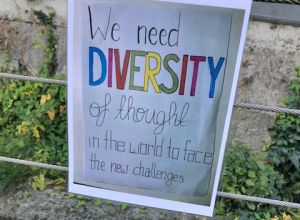 We need
DIVERSITY
of thought
in the world to face
the new challenges